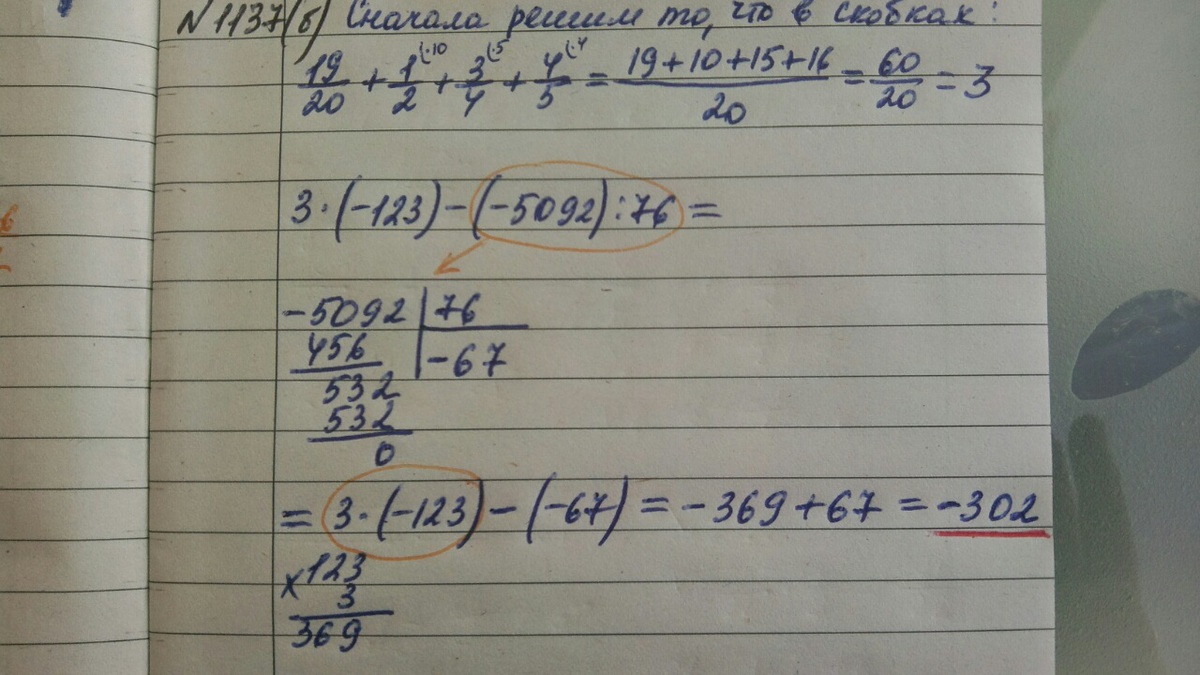 N 1137(б) Сначала решим то, что в скобках:
19/20 + 1/2 (·10 + 3/4 (·5 + 4/5 (·4 = 19+10+15+16/20 = 60/20 = 3
3·(-123)-(-5092):76=
-5092 | 76
456 | -67
532
532
0
= 3·(-123)-(-67) = -369+67 = -302
x 123
3
369